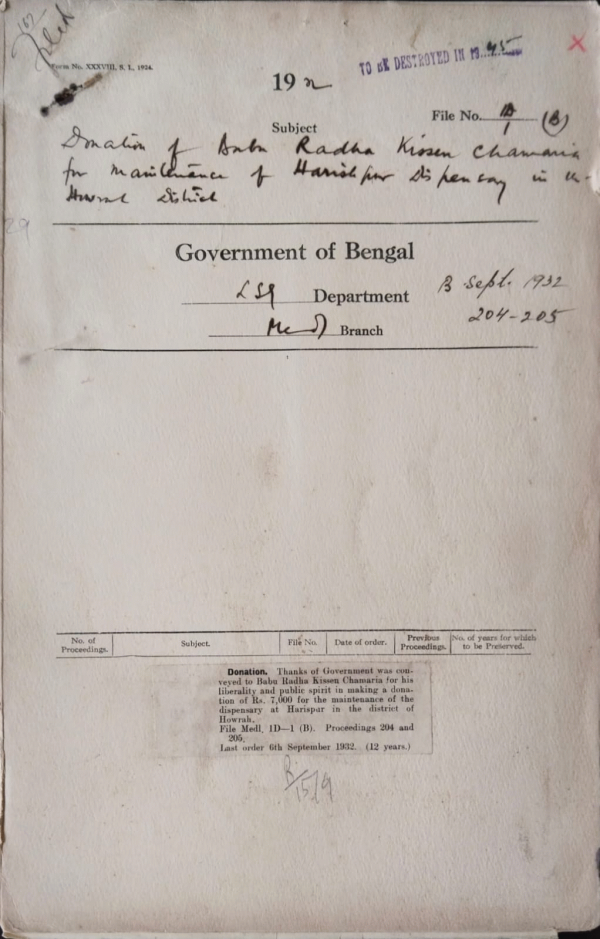 Filed
Form No. XXXVIII, S. I., 1924.
TO BE DESTROYED IN 1945
19
File No. 1D/1 (B)
Subject
Donation of Babu Radha Kissen Chamaria
for maintenance of Harishpur Dispensary in the
Howrah District
29
Government of Bengal
LSG Department
B Sept. 1932
Medl Branch
204-205
No. of Proceedings. Subject. File No. Date of order. Previous Proceedings. No. of years for which to be Preserved.
Donation. Thanks of Government was con-
veyed to Babu Radha Kissen Chamaria for his
liberality and public spirit in making a dona-
tion of Rs. 7,000 for the maintenance of the
dispensary at Harispur in the district of
Howrah.
File Medl. 1D—1 (B). Proceedings 204 and
205.
Last order 6th September 1932. (12 years.)
15/9